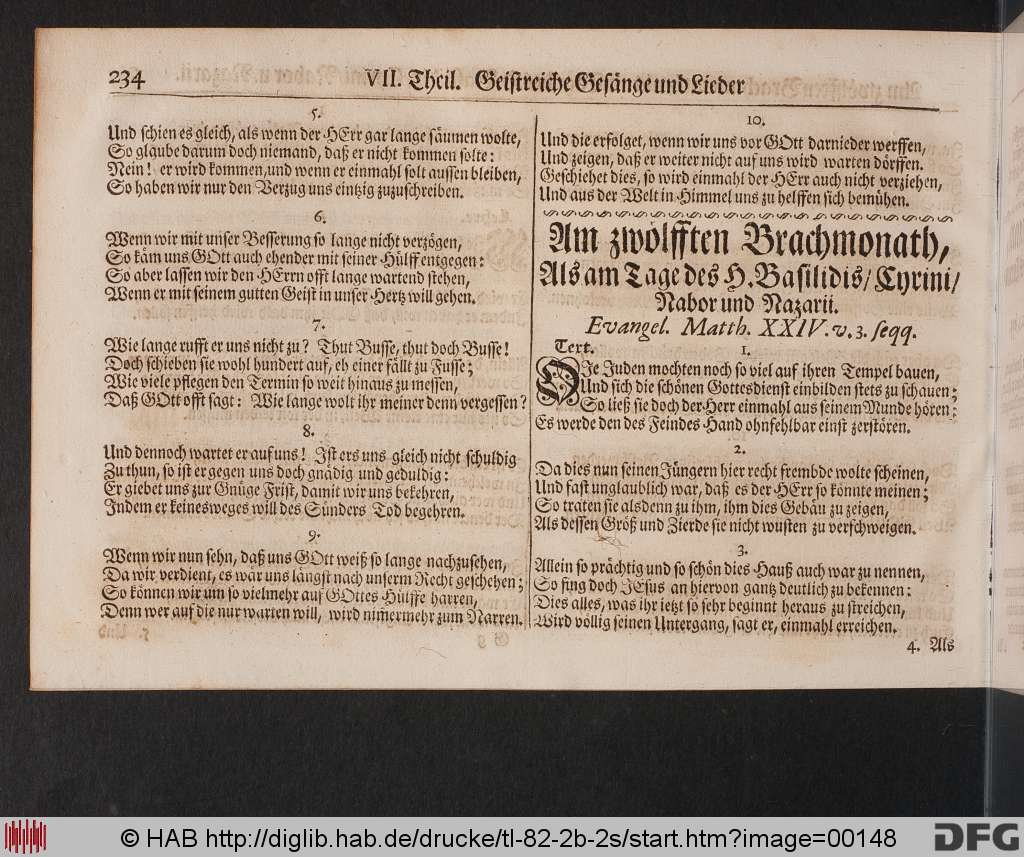 234
VII. Theil. Geistreiche Gesänge und Lieder
5.
Und schien es gleich, als wenn der HErr gar lange säumen wolte,
So glaube darum doch niemand, daß er nicht kommen solte:
Nein! er wird kommen, und wenn er einmahl solt aussen bleiben,
So haben wir nur den Verzug uns eintzig zuzuschreiben.
6.
Wenn wir mit unser Besserung so lange nicht verzögen,
So käm uns GOtt auch ehender mit seiner Hülff entgegen:
So aber lassen wir den HErrn offt lange wartend stehen,
Wenn er mit seinem gutten Geist in unser Hertz will gehen.
7.
Wie lange rufft er uns nicht zu? Thut Busse, thut doch Busse!
Doch schieben sie wohl hundert auf, eh einer fällt zu Fusse;
Wie viele pflegen den Termin so weit hinaus zu messen,
Daß GOtt offt sagt: Wie lange wolt ihr meiner denn vergessen?
8.
Und dennoch wartet er auf uns! Ist ers uns gleich nicht schuldig
Zu thun, so ist er gegen uns doch gnädig und geduldig:
Er giebet uns zur Gnüge Frist, damit wir uns bekehren,
Indem er keinesweges will des Sünders Tod begehren.
9.
Wenn wir nun sehn, daß uns GOtt weiß so lange nachzusehen,
Da wir verdient, es wär uns längst nach unserm Recht geschehen;
So können wir um so vielmehr auf GOttes Hülffe harren,
Denn wer auf die nur warten will, wird nimermehr zum Narren.
10.
Und die erfolget, wenn wir uns vor GOtt darnieder werffen,
Und zeigen, daß er weiter nicht auf uns wird warten dörffen.
Geschiehet dies, so wird einmahl der HErr auch nicht verziehen,
Und aus der Welt in Himmel uns zu helffen sich bemühen.
Am zwölfften Brachmonath,
Als am Tage des H. Basilidis/ Cyrini/
Nabor und Nazarii.
Evangel. Matth. XXIV. v. 3. seqq.
Text. 1.
DIe Juden mochten noch so viel auf ihren Tempel bauen,
Und sich die schönen Gottesdienst einbilden stets zu schauen;
So ließ sie doch der Herr einmahl aus seinem Munde hören:
Es werde den des Feindes Hand ohnfehlbar einst zerstören.
2.
Da dies nun seinen Jüngern hier recht frembde wolte scheinen,
Und fast unglaublich war, daß es der HErr so könnte meinen;
So traten sie alsdenn zu ihm, ihm dies Gebäu zu zeigen,
Als dessen Größ und Zierde sie nicht wusten zu verschweigen.
3.
Allein so prächtig und so schön dies Hauß auch war zu nennen,
So fing doch JEsus an hiervon gantz deutlich zu bekennen:
Dies alles, was ihr ietzt so sehr beginnt heraus zu streichen,
Wird völlig seinen Untergang, sagt er, einmahl erreichen.
4. Als
© HAB http://diglib.hab.de/drucke/tl-82-2b-2s/start.htm?image=00148
DFG